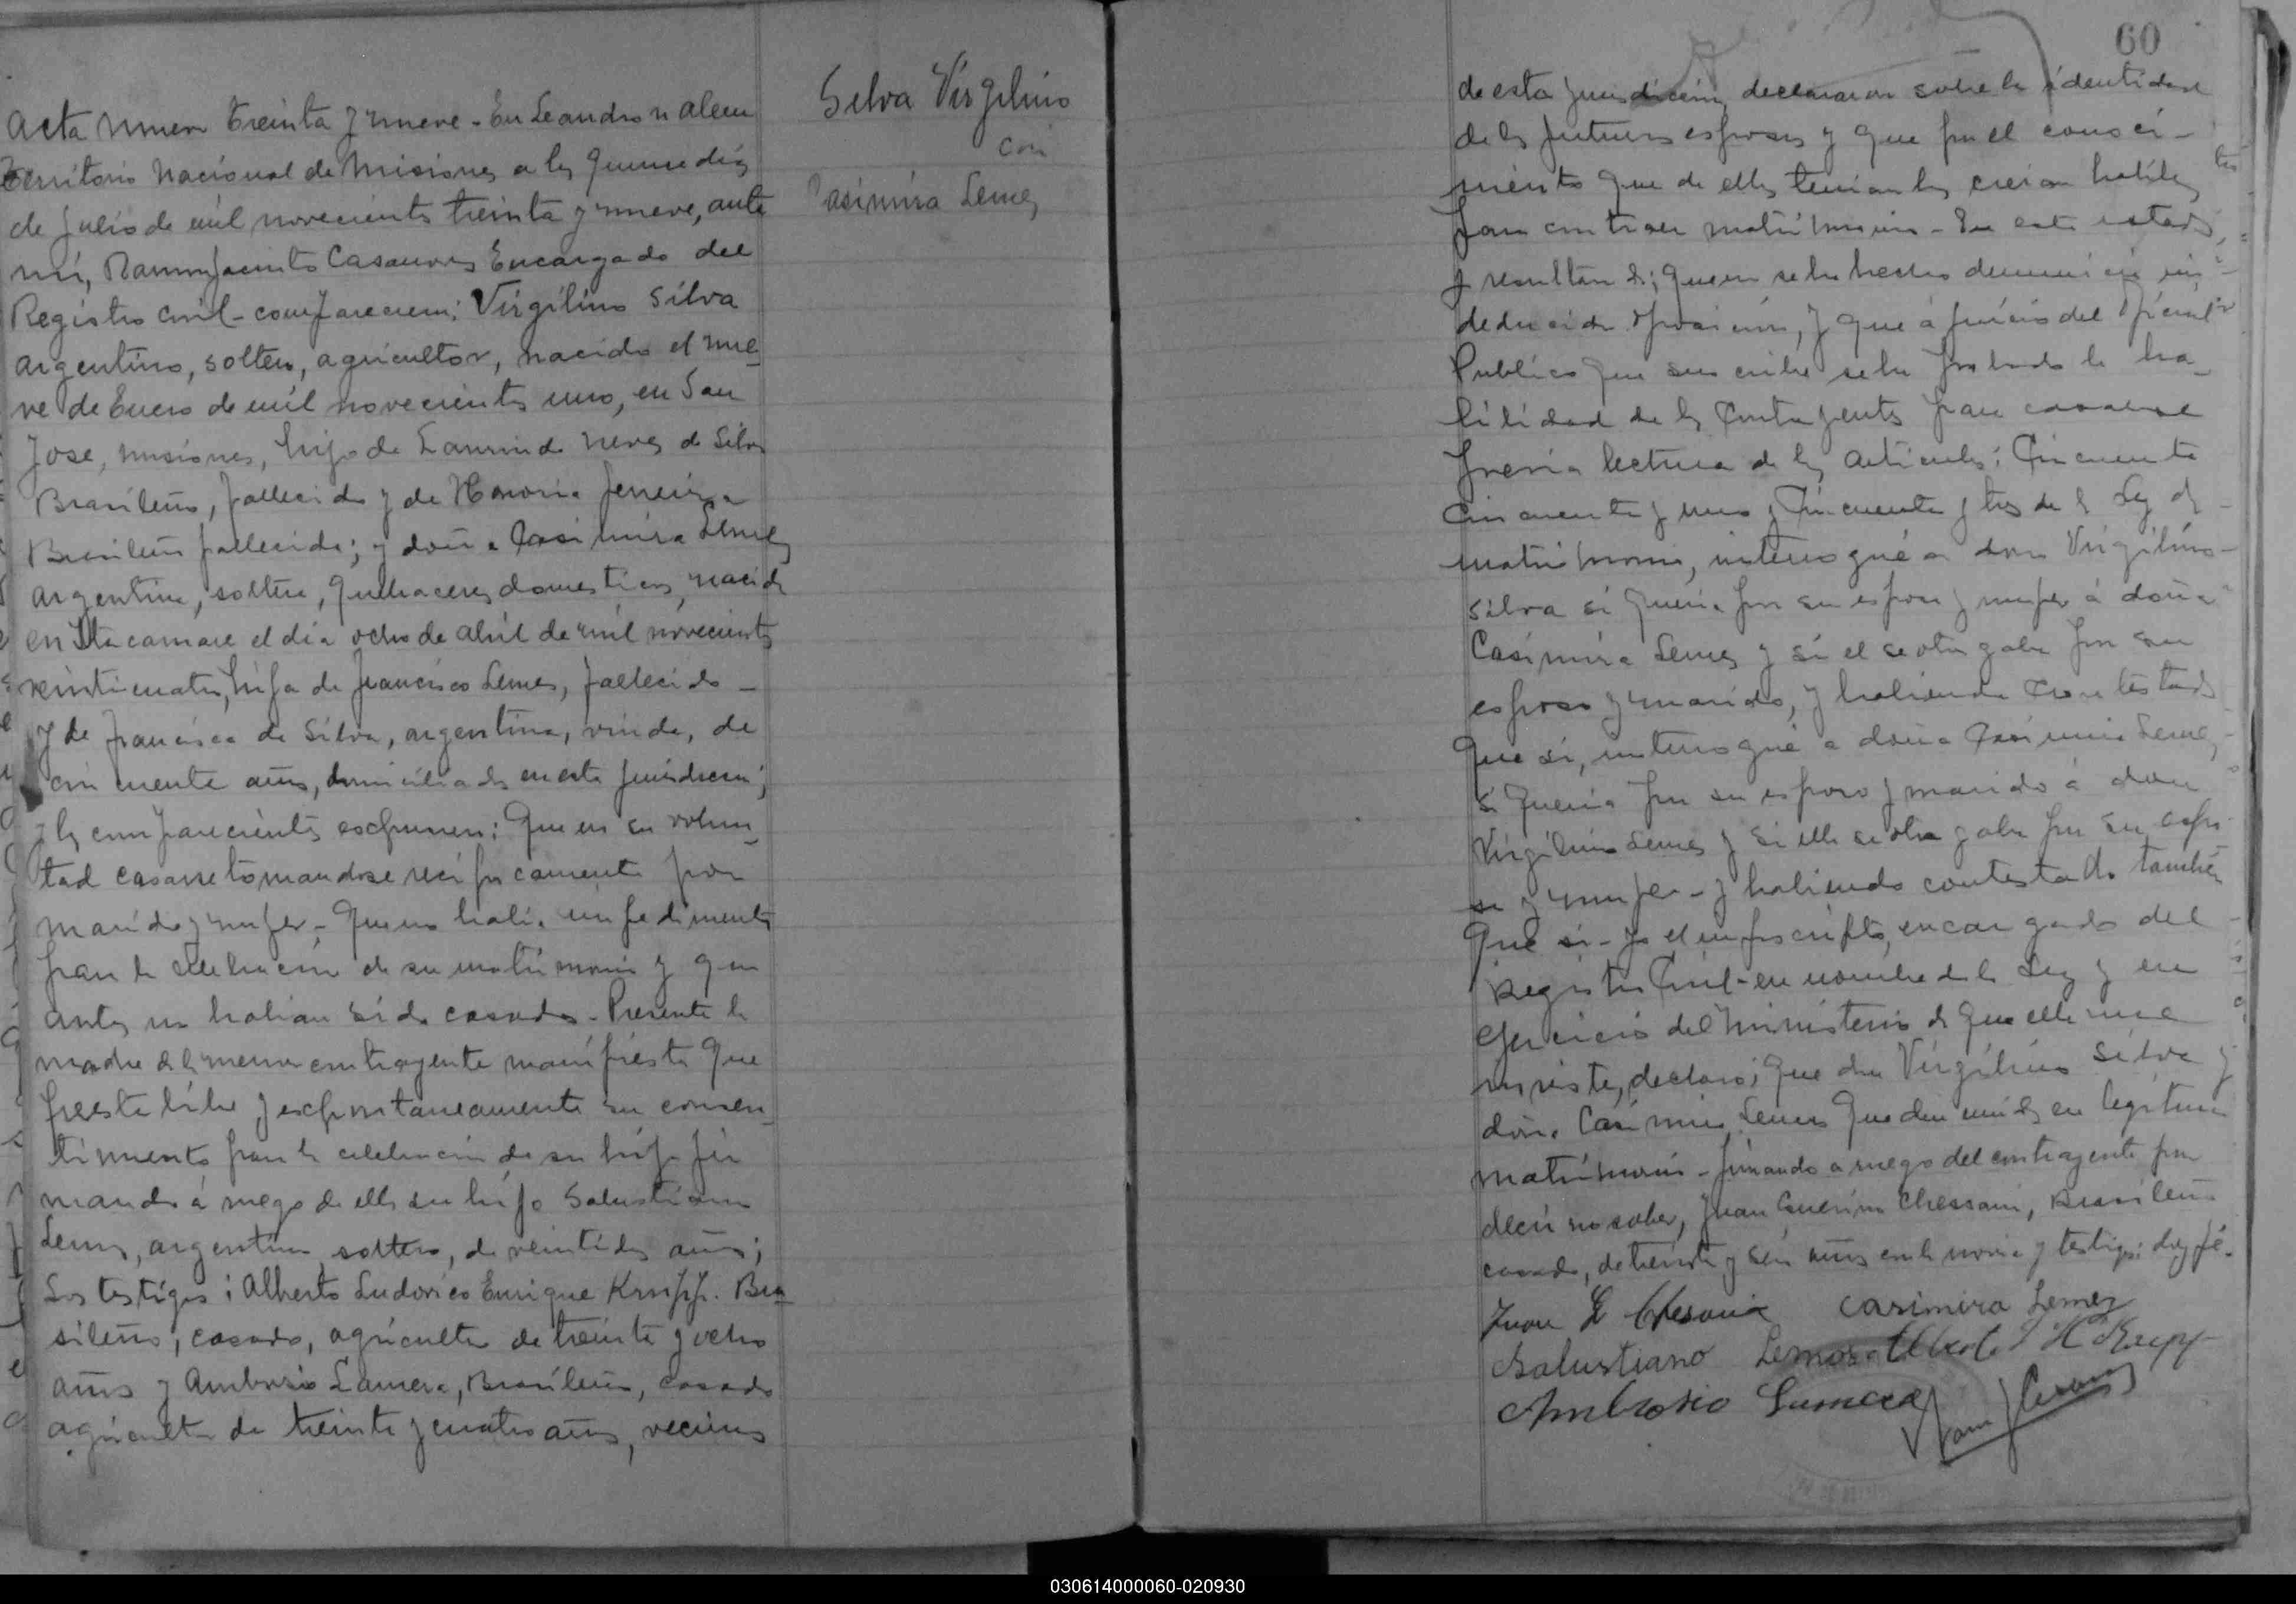 Acta numero treinta y nueve - En Leandro N Alem
Territorio Nacional de Misiones a los quince dias
de Julio de mil novecientos treinta y nueve, ante
mi, Ramon Jacinto Casanova Encargado del
Registro Civil - comparecen: Virgilino Silva
argentino, soltero, agricultor, nacido el nue
ve de Enero de mil novecientos uno, en San
Jose, Misiones, hijo de Laurindo Neves da Silva
Brasileño, fallecido y de Honoria Ferreira
Brasileña fallecida; y doña Casimira Lemes
argentina, soltera, quehaceres domesticos, nacida
en Itacaruaré el dia ocho de abril de mil novecientos
veinticuatro, hija de Francisco Lemes, fallecido -
y de Francisca da Silva, argentina, viuda, de
cincuenta años, domiciliados en esta jurisdiccion;
y los comparecientes exponen: Que es su volun
tad casarse tomandose reciprocamente por
marido y mujer - Que no habia impedimento
para la celebracion de su matrimonio y que
antes no habian sido casados - Presente la
madre de la menor contrayente manifiesta que
presta libre y expontaneamente su consen
timiento para la celebracion de su hija fir
mando á ruego de ella su hijo Salustiano
Lemes, argentino soltero, de veintidos años;
Los testigos: Alberto Ludovico Enrique Krupp. Bra
sileño, casado, agricultor de treinta y ocho
años y Ambrosio Lamera, Brasileño, casado
agricultor de treinta y cuatro años, vecinos
Silva Virgilino
con
Casimira Lemes
60
de esta jurisdiccion, declararon sobre la identidad
de los futuros esposos y que por el conoci -
miento que de ellos tenian los creian habiles
para contraer matrimonio - En este estado,
y resultando; que no se ha hecho denuncia ni
deducido oposicion, y que á juicio del Oficial
Publico que suscribe se ha probado la ha -
bilidad de los Contrayentes para casarse
previa lectura de los articulos: Cincuenta
Cincuenta y uno y Cincuenta y tres de la Ley de
matrimonio, interrogué a don Virgilino -
Silva si queria por su esposa y mujer á doña
Casimira Lemes y si el se otorgaba por su
esposo y marido, y habiendo contestado
que si, interrogué a doña Casimira Lemes,
si queria por su esposo y marido á don
Virgilino Lemes y si ella se otorgaba por su espo
sa y mujer - y habiendo contestado también
que si - yo el infrascripto, encargado del
Registro Civil - en nombre de la Ley y en
ejercicio del Ministerio de que ella me
inviste, declaro; que don Virgilino Silva y
doña Casimira Lemes quedan unidos en legitimo
matrimonio - firmando a ruego del contrayente por
decir no saber, Juan Guerino Chessani, Brasileño
casado, de treinta y seis años con la novia y testigos: doy fé.
Juan G Chesani Casimira Lemes
Salustiano Lemes Alberto L H Krupp
Ambrosio Lamera
030614000060-020930